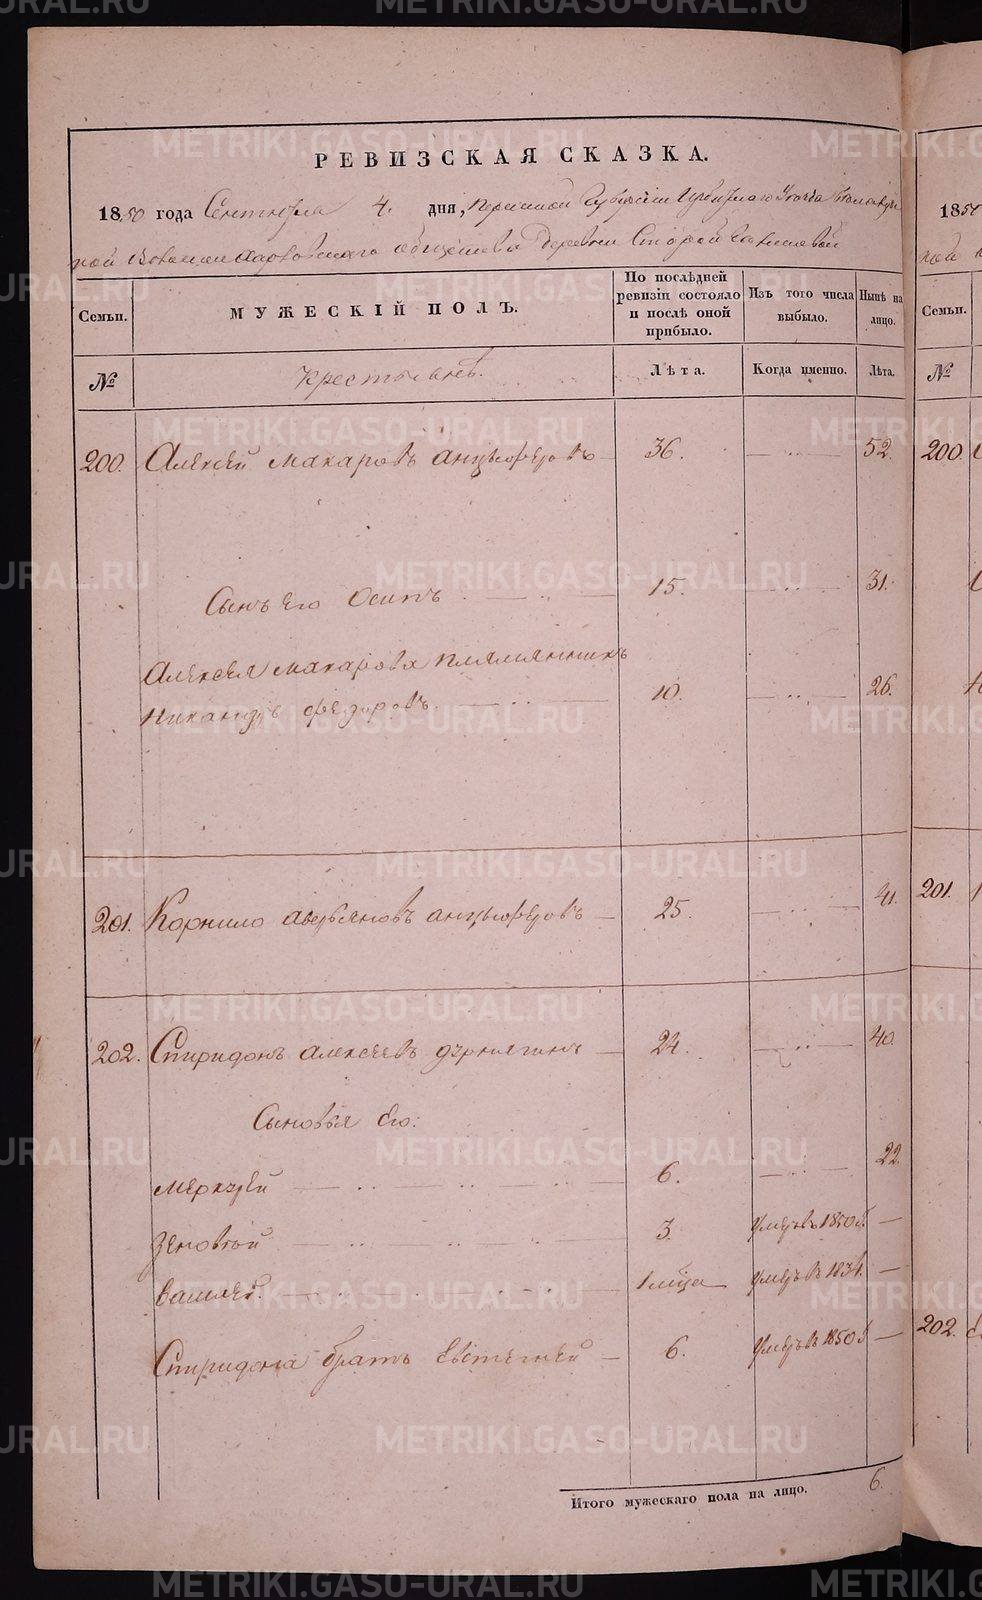 METRIKI.GASO-URAL.RU
РЕВИЗСКАЯ СКАЗКА.
1850 года Сентября 4. дня, Пермской Губернии Ирбитского Уезда
кой Волости общества Деревни Старой
Семьи.
МУЖЕСКІЙ ПОЛЪ.
По послѣдней ревизіи состояло и послѣ оной прибыло.
Изъ того числа выбыло.
Нынѣ на лицо.
№
Крестьянѣ.
Лѣта.
Когда именно.
Лѣта.
200. Алексей Макаровъ Анцыферовъ 36. 52.
Сынъ Его Осипъ 15. 31.
Алексея Макарова племянникъ
Никандръ Федоровъ 10. 26.
201. Корнило Аверьяновъ Анцыферовъ 25. 41.
202. Спиридонъ Алексеевъ Дернягинъ 24. 40.
Сыновья Его:
Меркурей 6. 22.
Зеновтой 3. Умеръ въ 1850 г.
1 мѣца Умеръ въ
Спиридона братъ Евстегней 6. Умеръ въ 1850 г.
Итого мужескаго пола на лицо. 6.
1850
Семьи.
№
200.
201.
202.